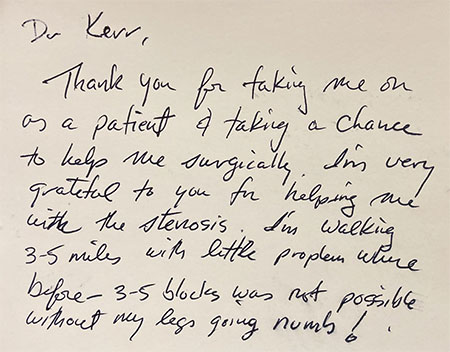 Dr Kerr,
Thank you for taking me on
as a patient & taking a chance
to help me surgically. I'm very
grateful to you for helping me
with the stenosis. I'm walking
3-5 miles with little problem where
before - 3-5 blocks was not possible
without my legs going numb!